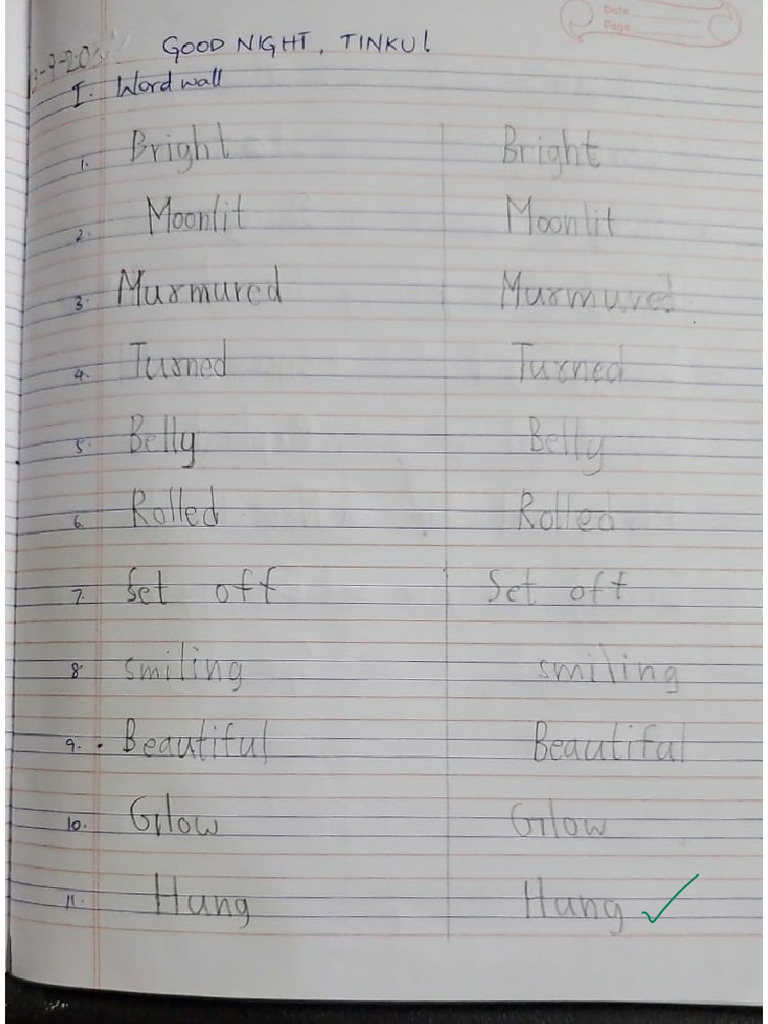 Date
Page
GOOD NIGHT, TINKU!
I. Word wall
1. Bright Bright
2. Moonlit Moonlit
3. Murmured Murmured
4. Turned Turned
5. Belly Belly
6. Rolled Rolled
7. Set off Set off
8. smiling smiling
9. Beautiful Beautiful
10. Glow Glow
11. Hung Hung